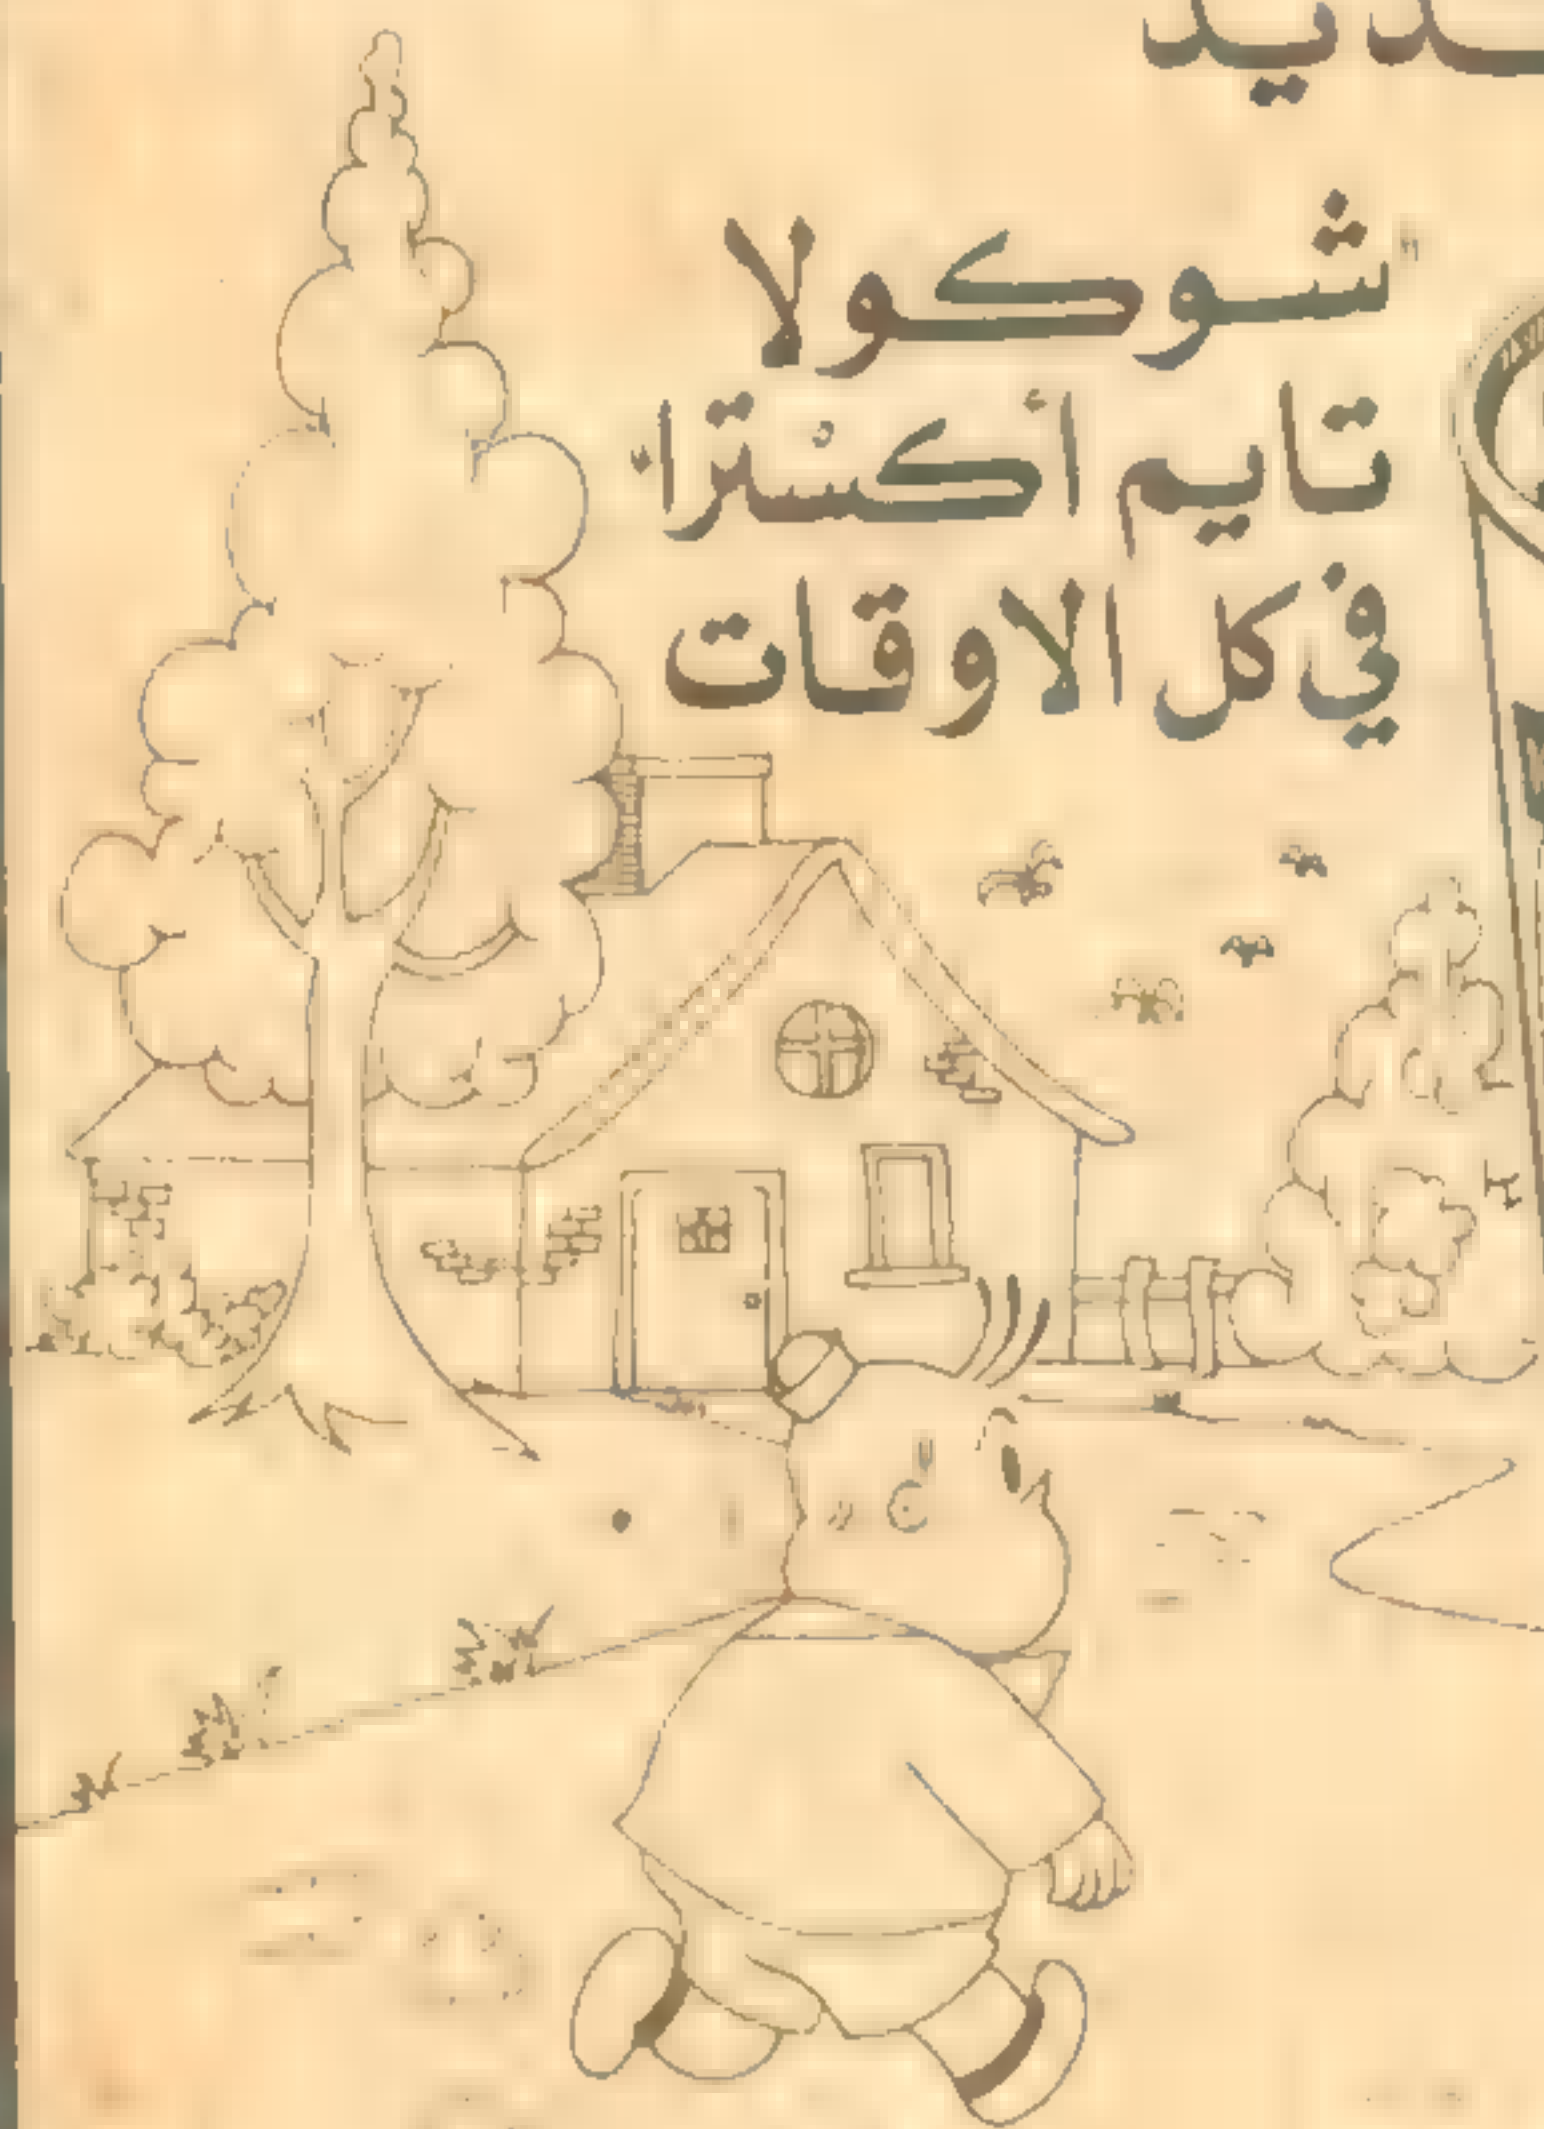 "شوكولا
تايم أكسْترا"
في كل الاوقات